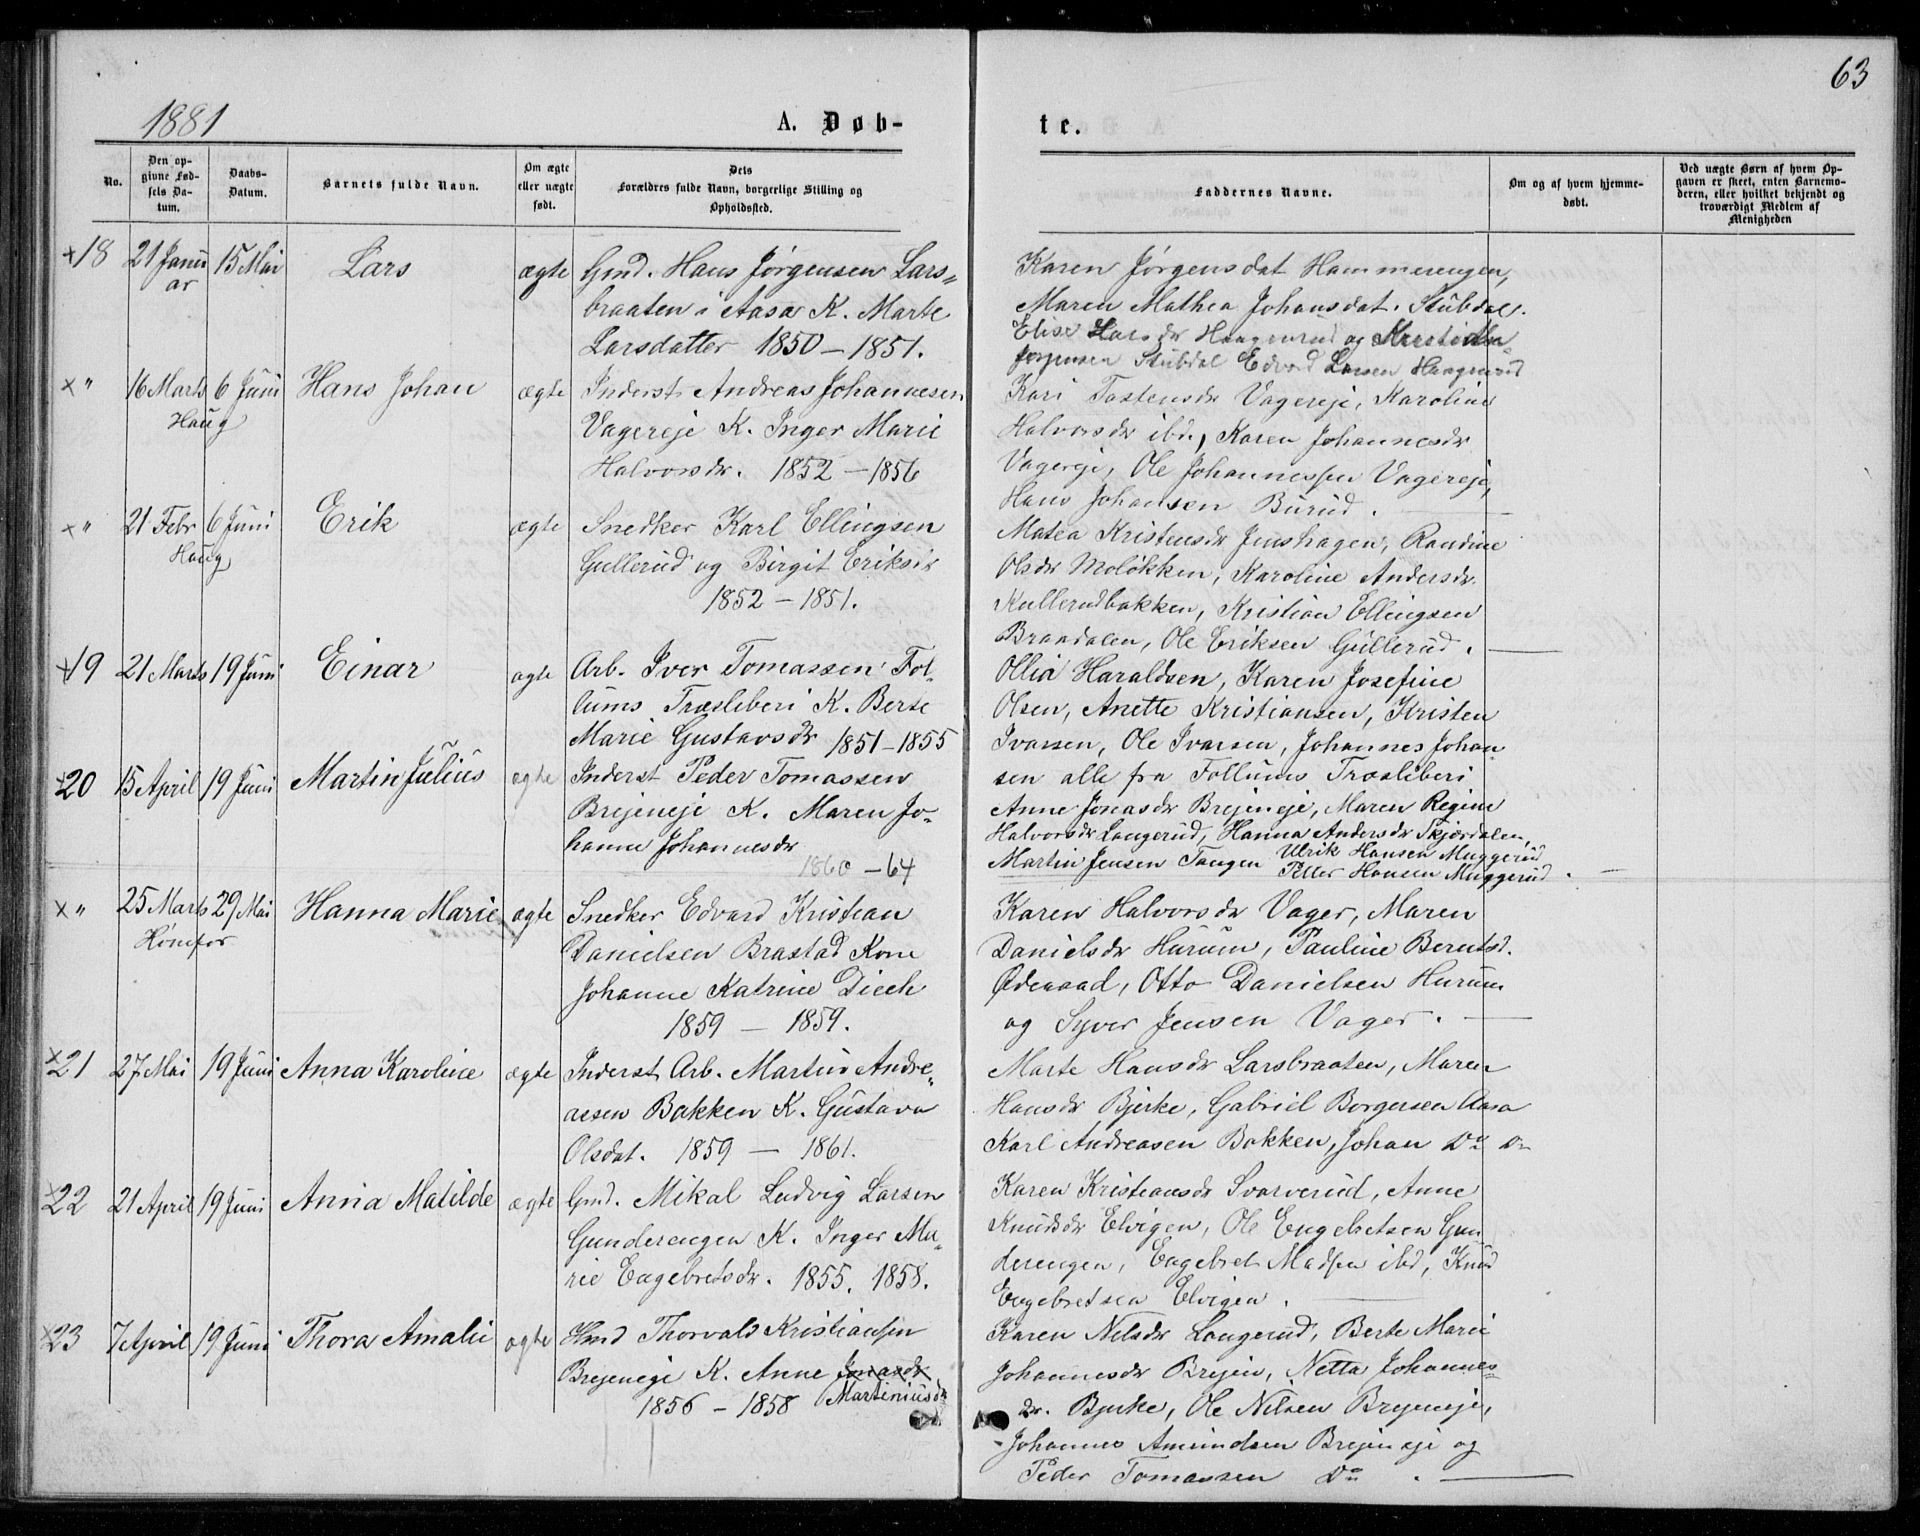 63
1881
A. Døb-
te.
No.
Den op-
givne Fød-
sels Da-
tum.
Daabs-
Datum.
Barnets fulde Navn.
Om ægte
eller uægte
født.
Dets
Forældres fulde Navn, borgerlige Stilling og
Opholdssted.
Faddernes Navne.
Om og af hvem hjemme-
døbt.
Ved uægte Børn af hvem Op-
gaven er skeet, enten Barnemo-
deren, eller hvilket bekjendt og
troværdigt Medlem af
Menigheden
×18 21 Janu 15 Mai Lars ægte Gmd. Hans Jørgensen Lars-
ar
braaten i Aasa K. Marte
Larsdatter 1850 – 1851.
Karen Jørgensdat Hammerengen,
Maren Mathea Johansdat. Stubdal.
Elise Larsdr Haagensrud og Kristian
Jørgensen Stubdal Edvard Larsen Haagensrud
×" 16 Marts 6 Juni Hans Johan ægte Inderst Andreas Johannesen
Haug
Vagereje K. Inger Marie
Halvorsdr. 1852 – 1856
Kari Tostensdr Vagereje, Karoline
Halvorsdr ibd., Karen Johannesdr
Vagereje, Ole Johannessen Vagereje,
Hans Johansen Burud.
×" 21 Febr 6 Juni Erik ægte Snedker Karl Ellingsen
Haug
Gullerud og Birgit Eriksdr
1852 – 1851.
Matea Kristensdr Jenshagen, Randine
Olsdr Moløkken, Karoline Andersdr
Kullerudbakken, Kristian Ellingsen
Braadalen, Ole Eriksen Gullerud.
×19 21 Marts 19 Juni Einar ægte Arb. Iver Tomassen Fol-
lums Træsliberi K. Berte
Marie Gustavsdr 1851 – 1855
Ollia Haraldsen, Karen Josefine
Olsen, Anette Kristiansen, Kristen
Ivarsen, Ole Ivarsen, Johannes Johan
sen alle fra Follums Træsliberi
×20 15 April 19 Juni Martin Julius ægte Inderst Peder Tomassen
Brejeneje K. Maren Jo-
hanne Johannesdr
1860 – 64
Anne Jonasdr Brejeneje, Maren Regine
Halvorsdr Langerud, Hanna Andersdr Skjærdalen,
Martin Jensen Tangen Ulrik Hansen Muggerud
Peller Hansen Muggerud.
×" 25 Marts 29 Mai Hanna Marie ægte Snedker Edvard Kristian
Hønefos
Danielsen Brastad Kone
Johanne Katrine Diech
1859 – 1859.
Karen Halvorsdr Vager, Maren
Danielsdr Hurum, Pauline Berntsd.
Ødegaad, Otto Danielsen Hurum
og Syver Jensen Vager.
×21 27 Mai 19 Juni Anna Karoline ægte Inderst Arb. Martin Andre-
assen Bakken K. Gustava
Olsdat. 1859 – 1861.
Marte Hansdr Larsbraaten, Maren
Hansdr Bjerke, Gabriel Borgersen Aasa
Karl Andreasen Bakken, Johan Do Do
×22 21 April 19 Juni Anna Matilde ægte Gmd. Mikal Ludvig Larsen
Gunderengen K. Inger Ma-
rie Engebretsdr. 1855. 1858.
Karen Kristiansdr Svarverud, Anne
Knudsdr Elvigen, Ole Engebretsen Gun
derengen, Engebret Madsen ibd, Knud
Engebretsen Elvigen.
×23 7 April 19 Juni Thora Amalie ægte Hmd Thorvald Kristiansen
Brejeneje K. Anne Jonasdr
1856 – 1858 Martiniusdr
Karen Nilsdr Langerud, Berte Marie
Johannesdr Brejen, Netta Johannes-
dr. Bjerke, Ole Nilsen Brejeneje,
Johannes Amundsen Brejeneje og
Peder Tomassen Do.